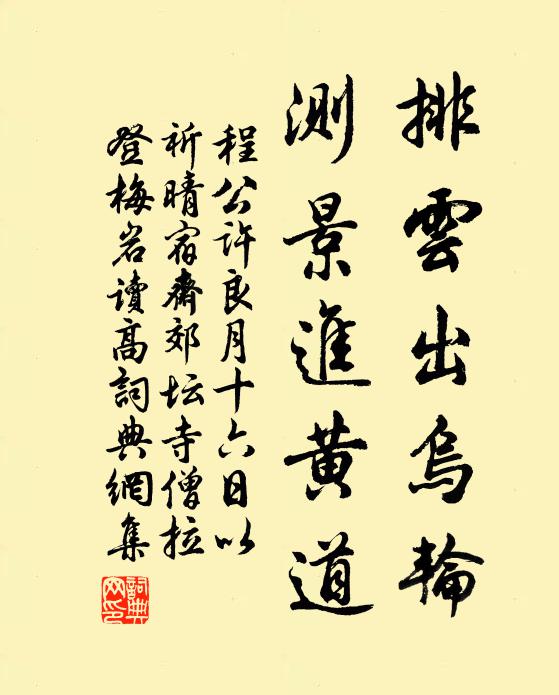 排雲出烏輪
測景進黃道
程公許良月十六日以
祈晴宿齋郊坛寺僧拉
登梅岩讀高詞典網集
詞典网印